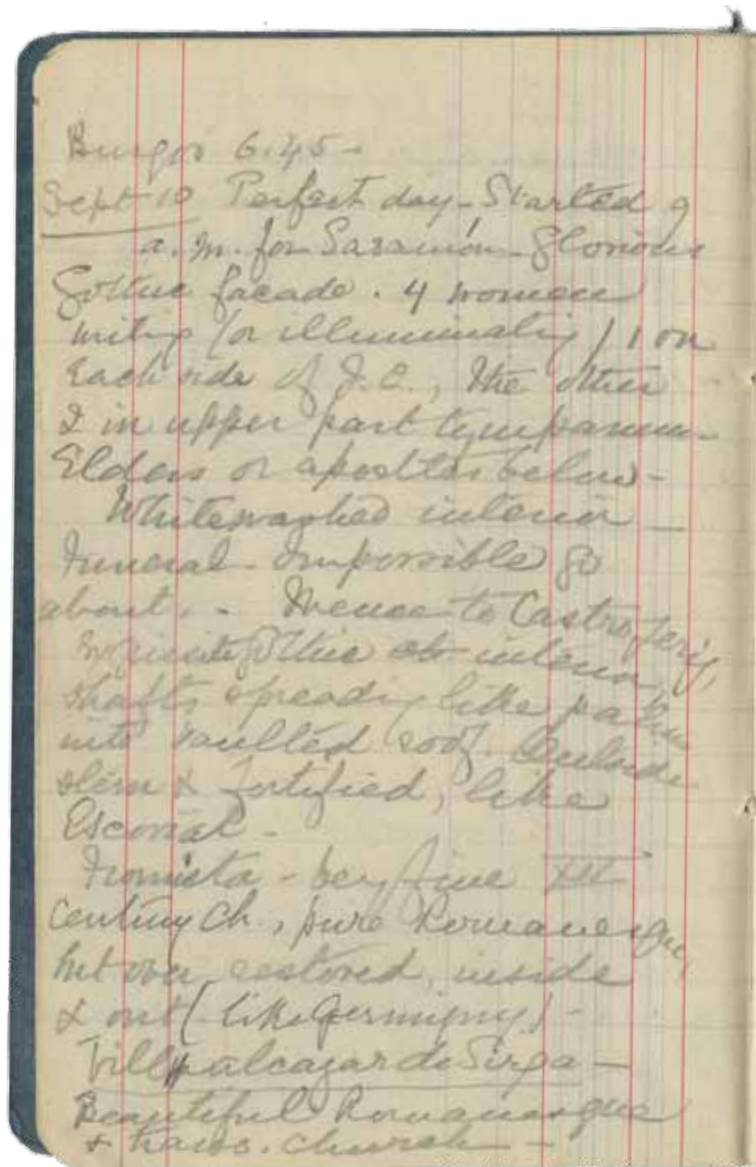 Burgos 6.45 -
Sept 10 Perfect day - Started 9
a.m. for Sasamón - Glorious
Gothic façade. 4 women
writing (or illuminating) 1 on
each side of J.C., the other
2 in upper part tympanum -
Elders or apostles below -
Whitewashed interior -
Funeral - Impossible go
about. - Thence to Castrojeriz,
exquisite Gothic interior,
shafts spreading like palm
into vaulted roof. Outside
stern & fortified, like
Escorial -
Fromista - very fine XII
Century Ch., pure Romanesque,
but over restored, inside
& out (like Germigny) -
Villalcazar de Sirga -
Beautiful Romanesque
& trans. church -